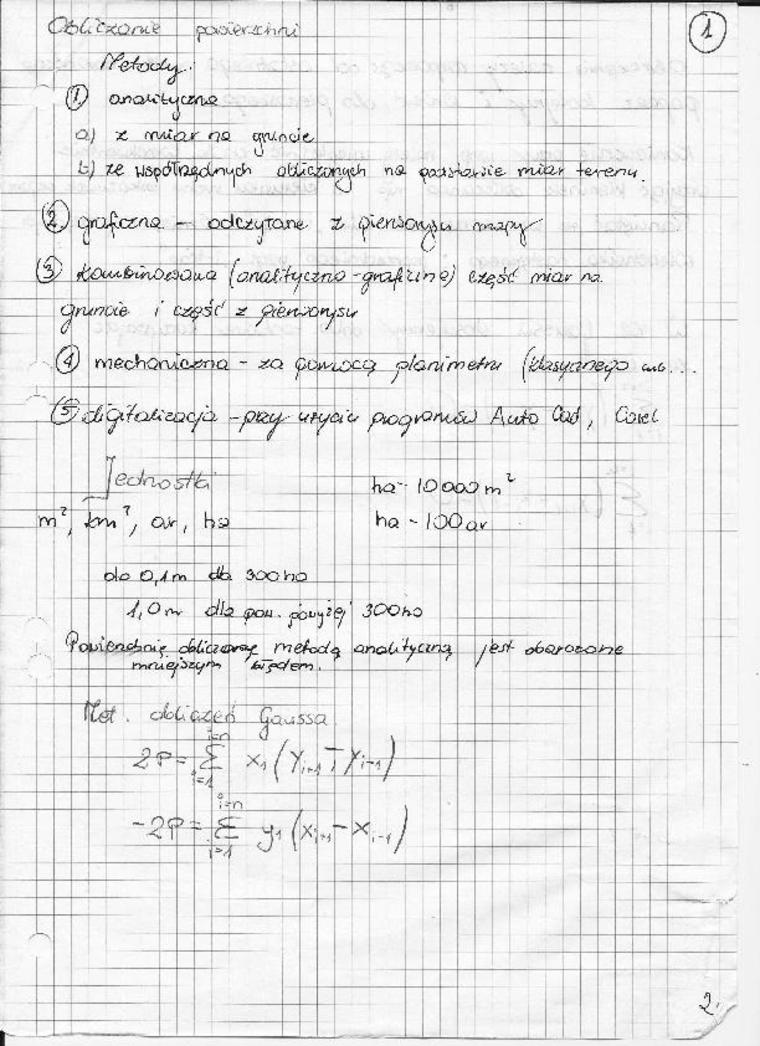 Obliczanie powierzchni
1
Metody:
① analityczna
a) z miar na gruncie
b) ze współrzędnych obliczonych na podstawie miar terenu.
② graficzna – odczytane z pierworysu mapy
③ kombinowana (analityczno-graficzna) część miar na
gruncie i część z pierworysu
④ mechaniczna – za pomocą planimetru (klasycznego ...
⑤ digitalizacja – przy użyciu programów Auto Cad, Corel
Jednostki
ha - 10 000 m²
m², km², ar, ha
ha - 100 ar
do 0,1m dla 300ha
1,0m dla pow. powyżej 300ha
Powierzchnię metodą analityczną jest obarczone
mniejszym błędem.
Met. obliczeń Gaussa.
2P = Σ_{i=1}^{i=n} x₁ (y_{i+1} - y_{i-1})
-2P = Σ_{i=1}^{i=n} y₁ (x_{i+1} - x_{i-1})
2.